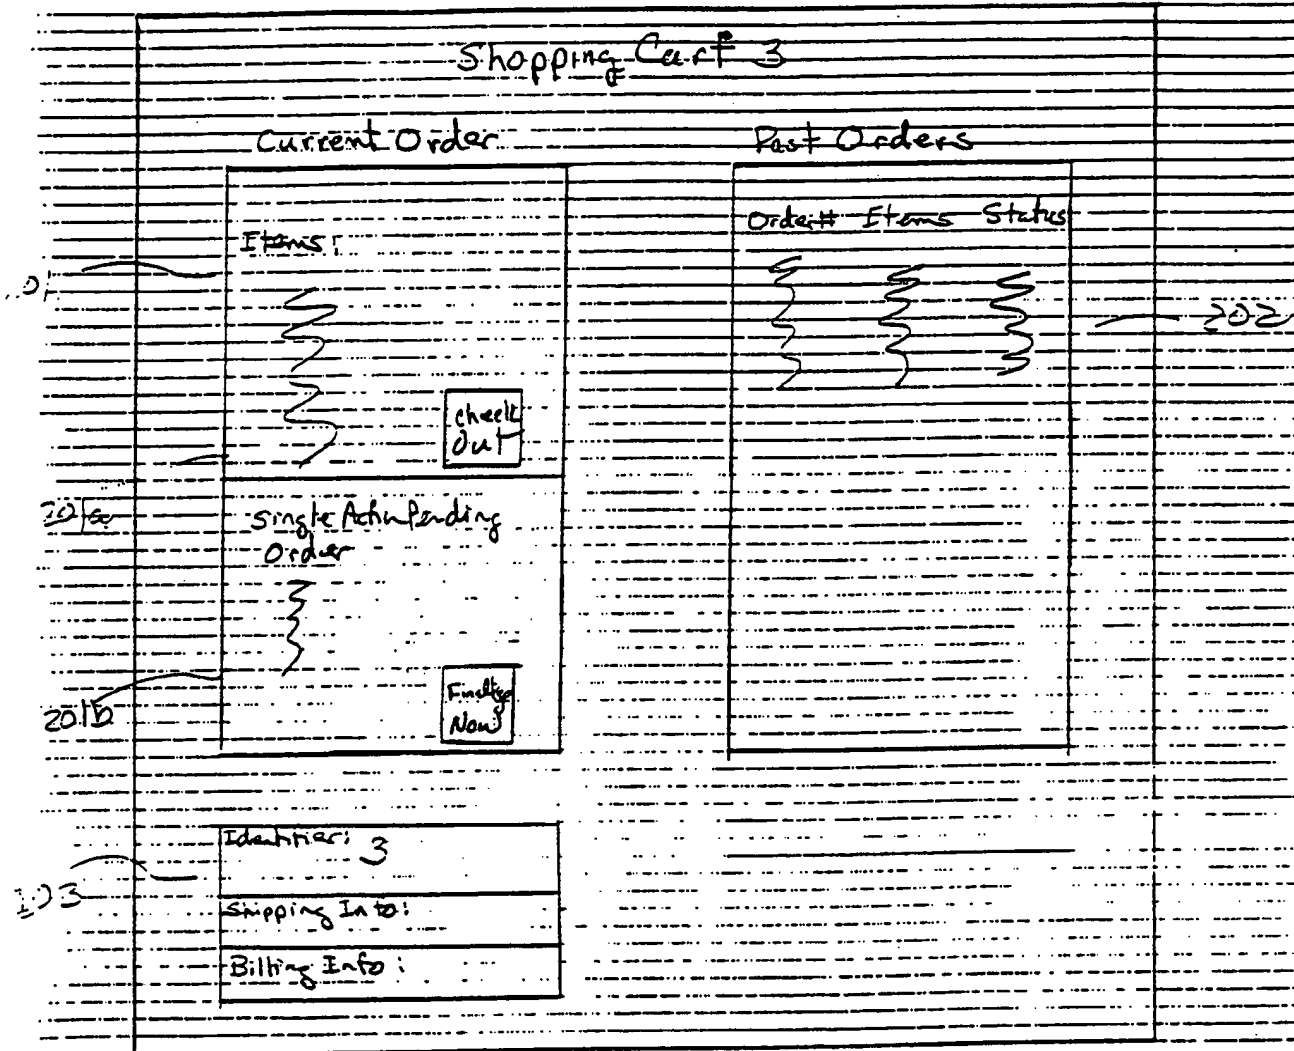 Shopping Cart 3
Current Order
Past Orders
Items:
Order# Items Status
202
Check
Out
Single Action Pending
Order
201b
Finalize
Now
Identifier: 3
Shipping Info:
Billing Info: